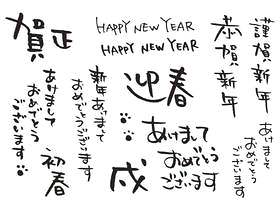 謹賀新年
あけまして
おめでとう
ございます
恭賀新年
HAPPY NEW YEAR
HAPPY NEW YEAR
迎春
あけまして
おめでとう
ございます
戌
新年あけまして
おめでとうございます
賀正
あけまして
おめでとう
ございます
初春